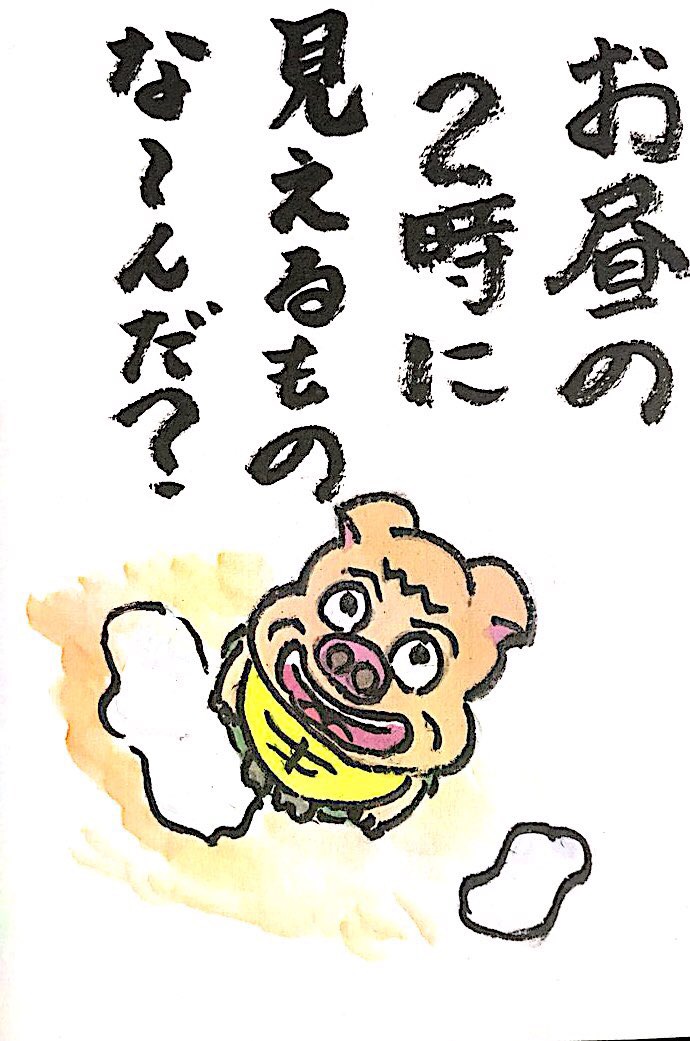 お昼の
2時に
見えるもの
な〜んだ？
キ